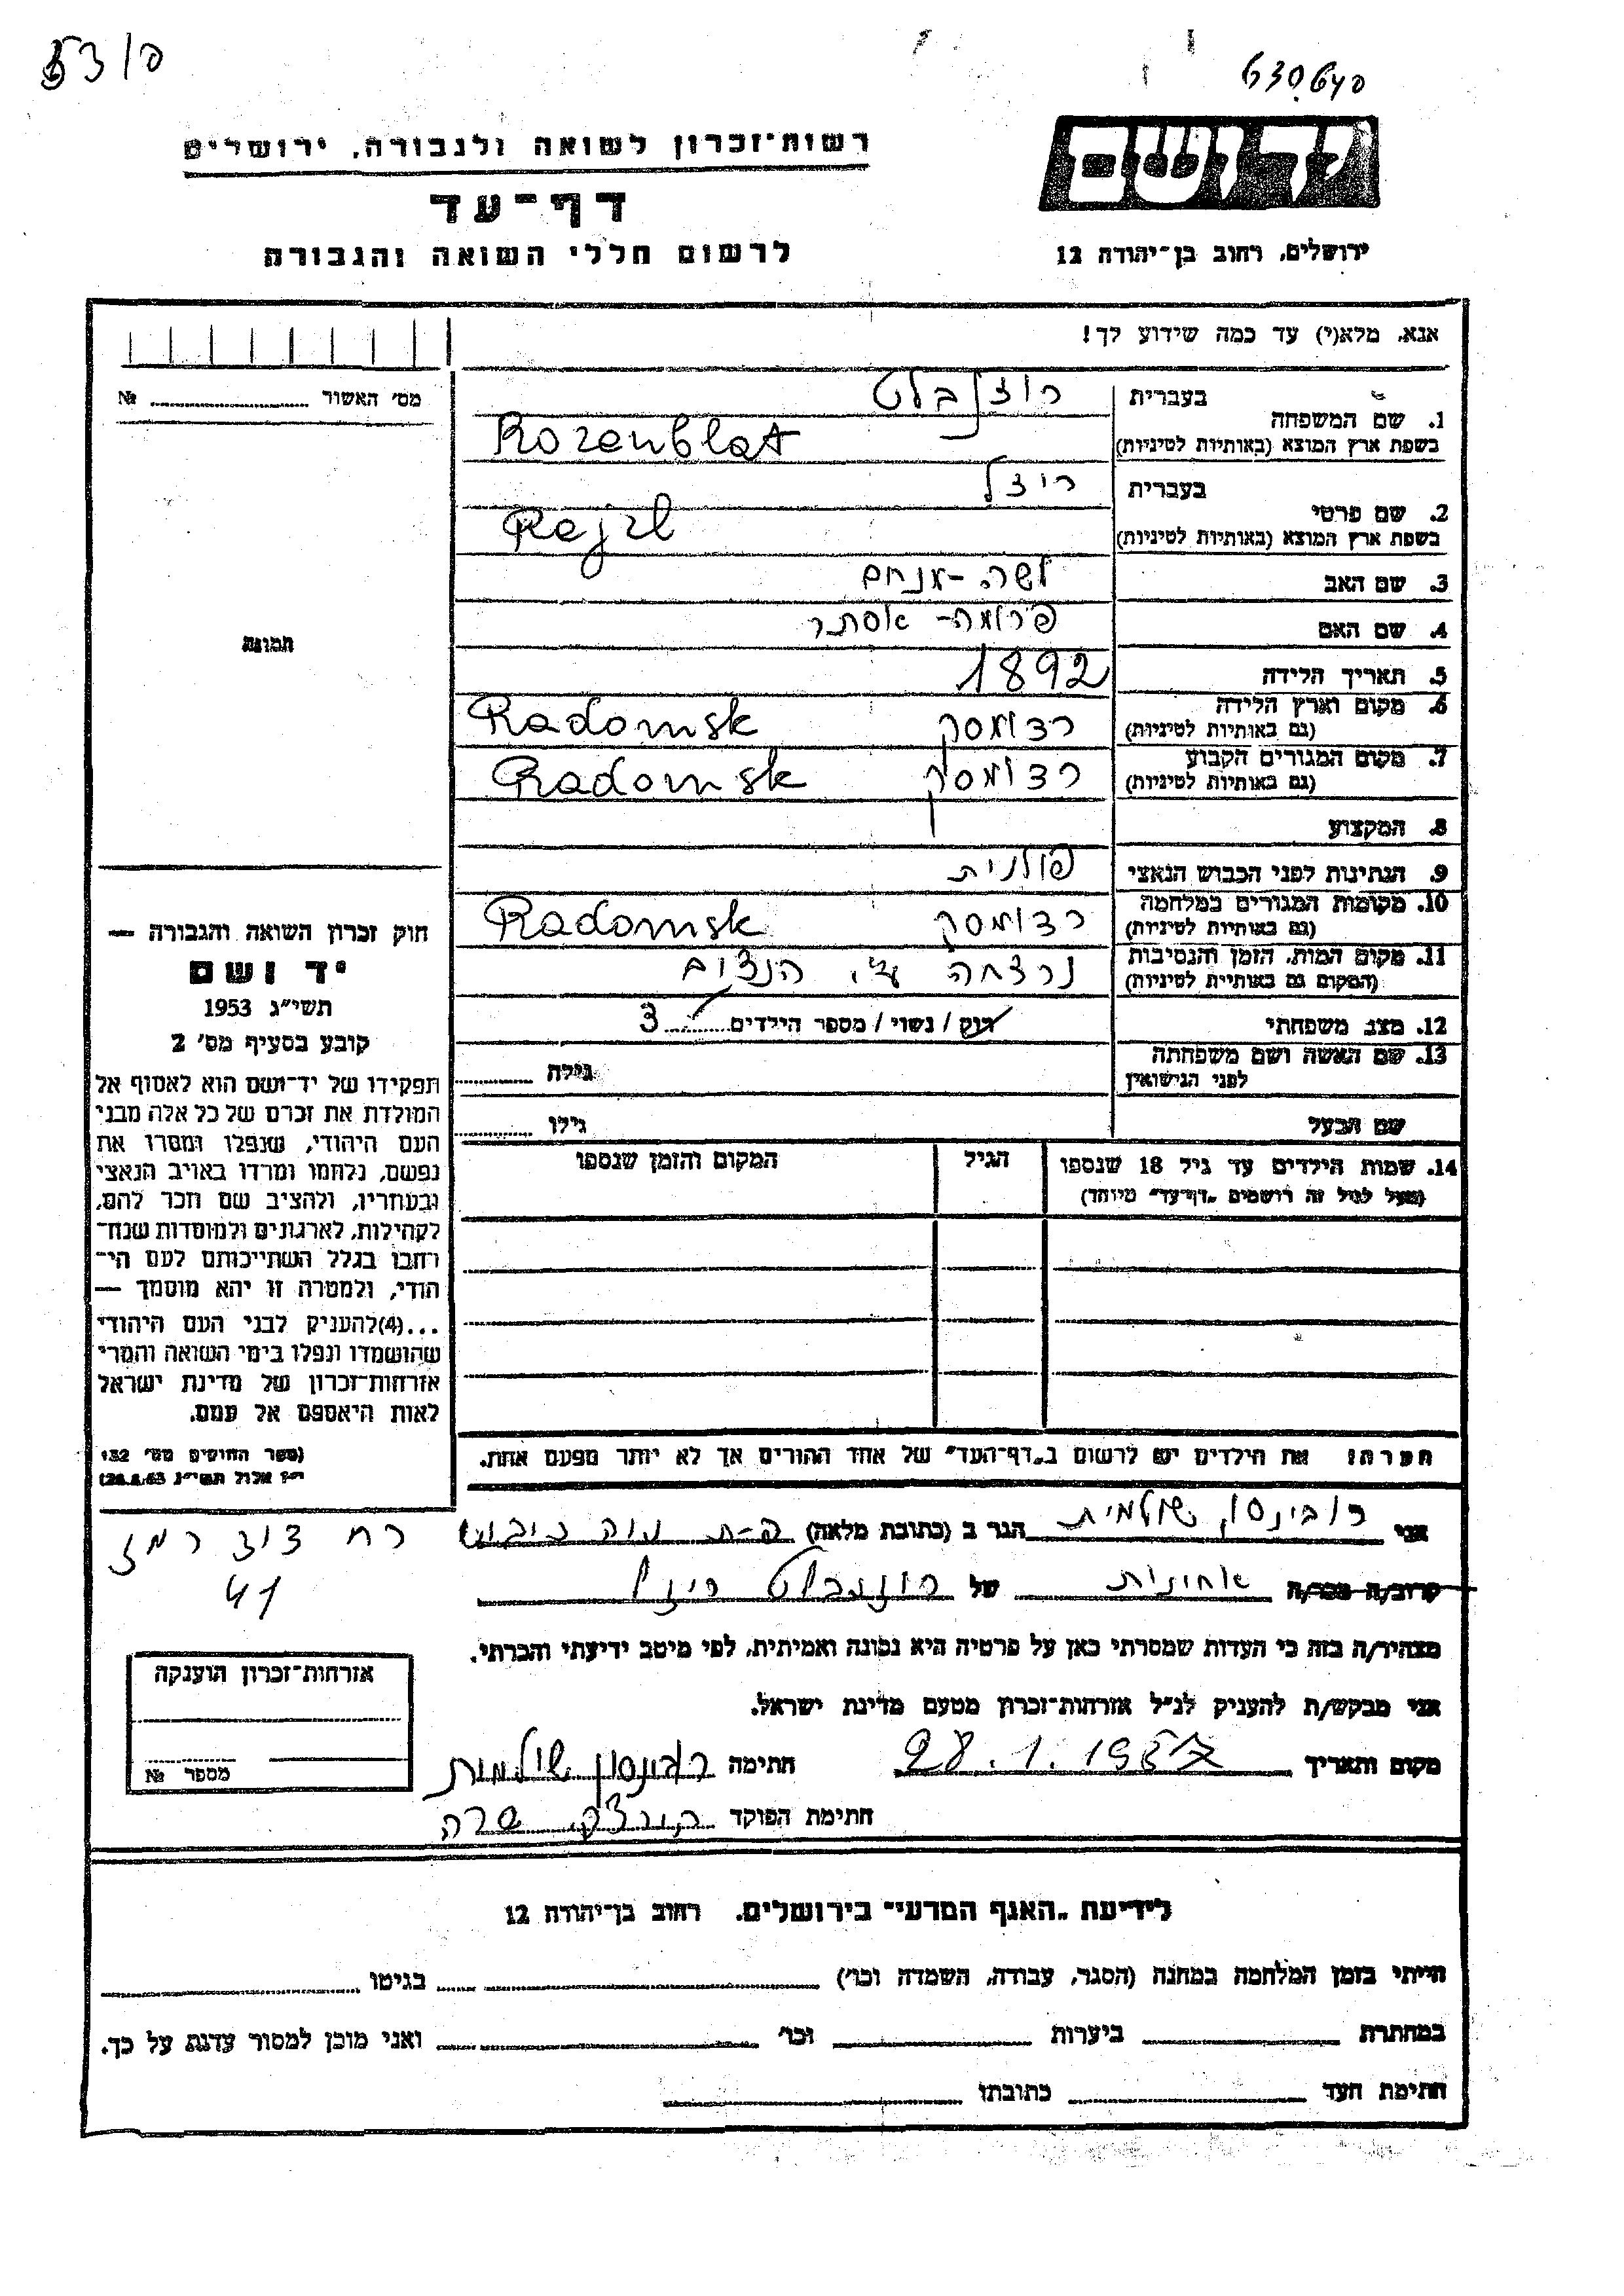 5310
630640
רשות־זכרון לשואה ולגבורה, ירושלים
דף־עד
לרשום חללי השואה והגבורה
יד ושם
ירושלים, רחוב בן־יהודה 12
אנא, מלא(י) עד כמה שידוע לך!
מס׳ האשור № 
1. שם המשפחה
בעברית
רוזנבלט
בשפת ארץ המוצא (באותיות לטיניות)
Rozenblat
2. שם פרטי
בעברית
ריזל
בשפת ארץ המוצא (באותיות לטיניות)
Rejzl
3. שם האב משה-מנחם
4. שם האם פרומה-אסתר
5. תאריך הלידה 1892
6. מקום וארץ הלידה רדומסק Radomsk
(גם באותיות לטיניות)
7. מקום המגורים הקבוע רדומסק Radomsk
(גם באותיות לטיניות)
8. המקצוע
9. הנתינות לפני הכבוש הנאצי פולנית
10. מקומות המגורים במלחמה רדומסק Radomsk
(גם באותיות לטיניות)
11. מקום המות, הזמן והנסיבות נרצחה ע״י הנצים
(המקום גם באותיות לטיניות)
12. מצב משפחתי רוק / נשוי / מספר הילדים 3
13. שם האשה ושם משפחתה גילה
לפני הנישואין
שם הבעל גילו
14. שמות הילדים עד גיל 18 שנספו הגיל המקום והזמן שנספו
(מעל לגיל זה רושמים „דף־עד״ מיוחד)
הערה: את הילדים יש לרשום ב„דף־העד״ של אחד ההורים אך לא יותר מפעם אחת.
תמונה
חוק זכרון השואה והגבורה —
יד ושם
תשי״ג 1953
קובע בסעיף מס׳ 2
תפקידו של יד־ושם הוא לאסוף אל
המולדת את זכרם של כל אלה מבני
העם היהודי, שנפלו ומסרו את
נפשם, נלחמו ומרדו באויב הנאצי
ובעוזריו, ולהציב שם וזכר להם,
לקהילות, לארגונים ולמוסדות שנח־
רבו בגלל השתייכותם לעם הי־
הודי, ולמטרה זו יהא מוסמך —
...(4)להעניק לבני העם היהודי
שהושמדו ונפלו בימי השואה והמרי
אזרחות־זכרון של מדינת ישראל
לאות היאספם אל עמם.
(ספר החוקים מס׳ 132,
י״ז אלול תשי״ג 28.8.53)
אני רובינסון שולמית הגר ב (כתובת מלאה) פ-ת נוה כיבוש רח דוד רמז
41
קרוב/ה מכר/ה אחינות של רוזנבלט ריזל
מצהיר/ה בזה כי העדות שמסרתי כאן על פרטיה היא נכונה ואמיתית, לפי מיטב ידיעתי והכרתי.
אני מבקש/ת להעניק לנ״ל אזרחות־זכרון מטעם מדינת ישראל.
מקום ותאריך 28.1.1987 חתימה רובינסון שולמית
חתימת הפוקד שרה
אזרחות־זכרון הוענקה
מספר №
לידיעת „האגף המדעי״ בירושלים, רחוב בן־יהודה 12
הייתי בזמן המלחמה במחנה (הסגר, עבודה, השמדה וכו׳) בגיטו
במחתרת ביערות וכו׳ ואני מוכן למסור עדות על כך.
חתימת העד כתובתו